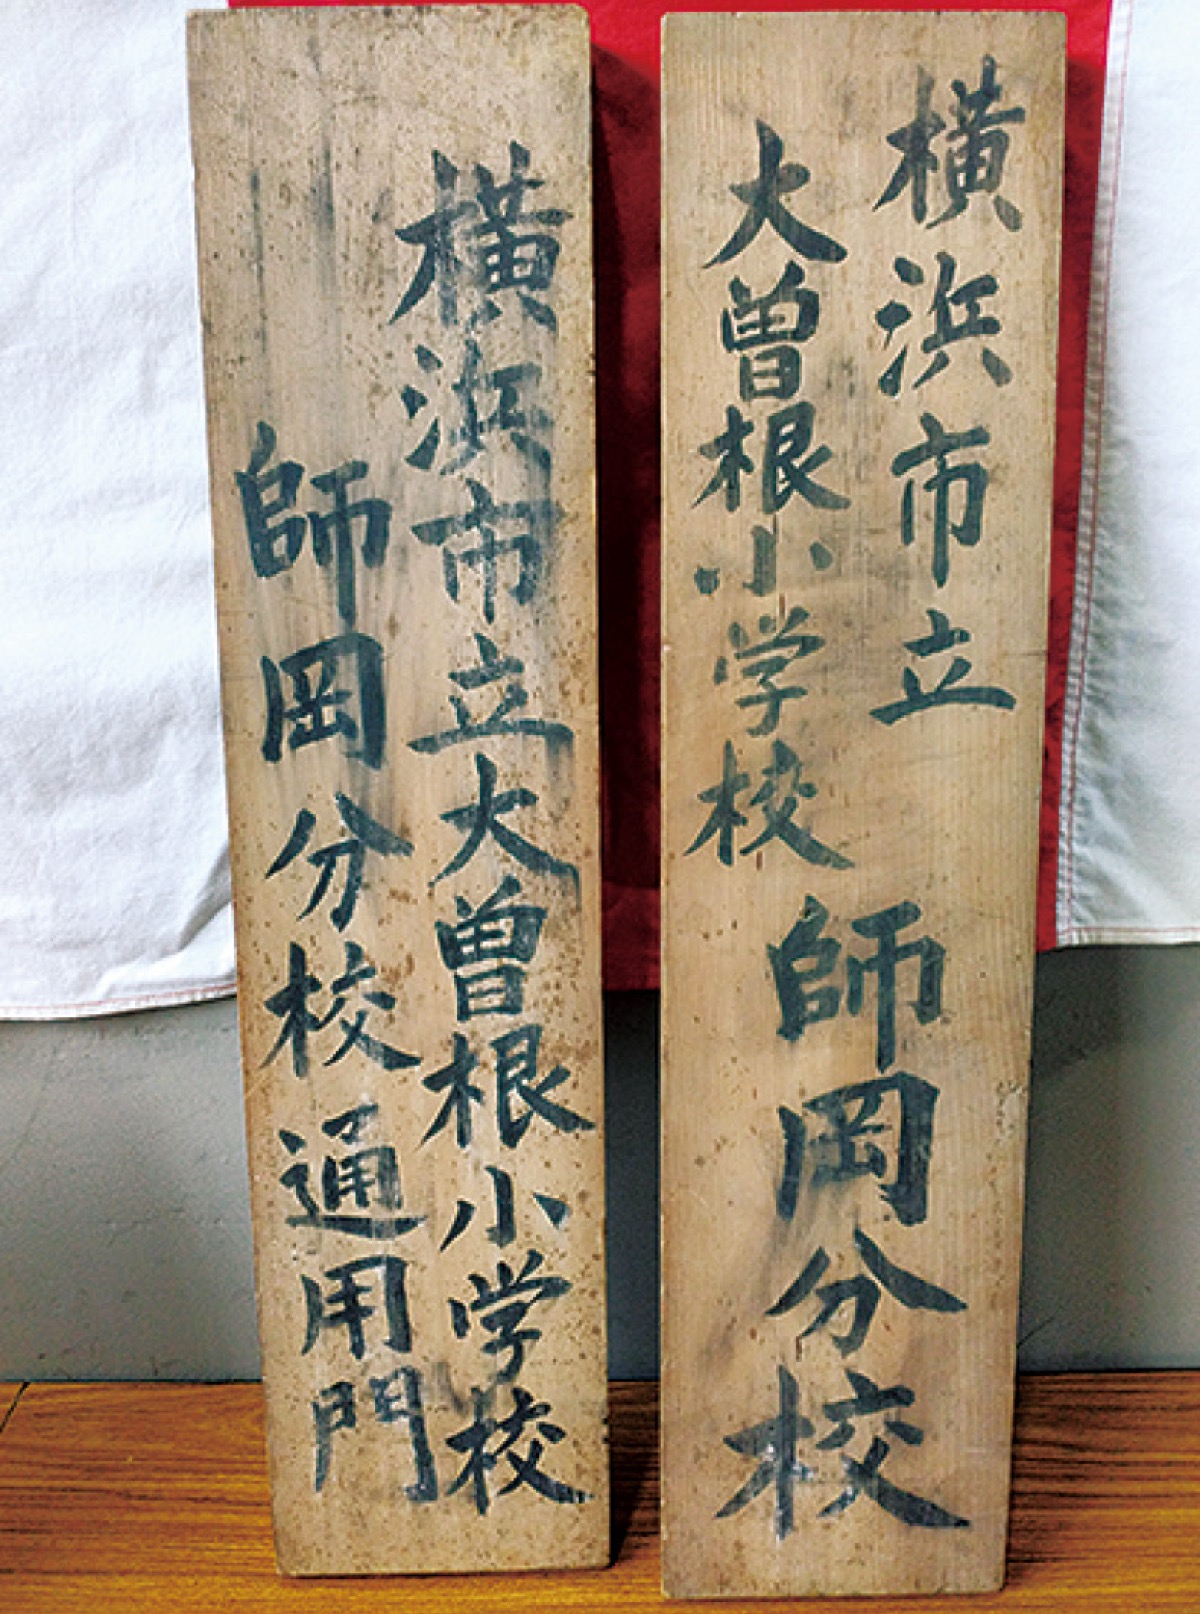 横浜市立
大曽根小学校
師岡分校
横浜市立大曽根小学校
師岡分校通用門